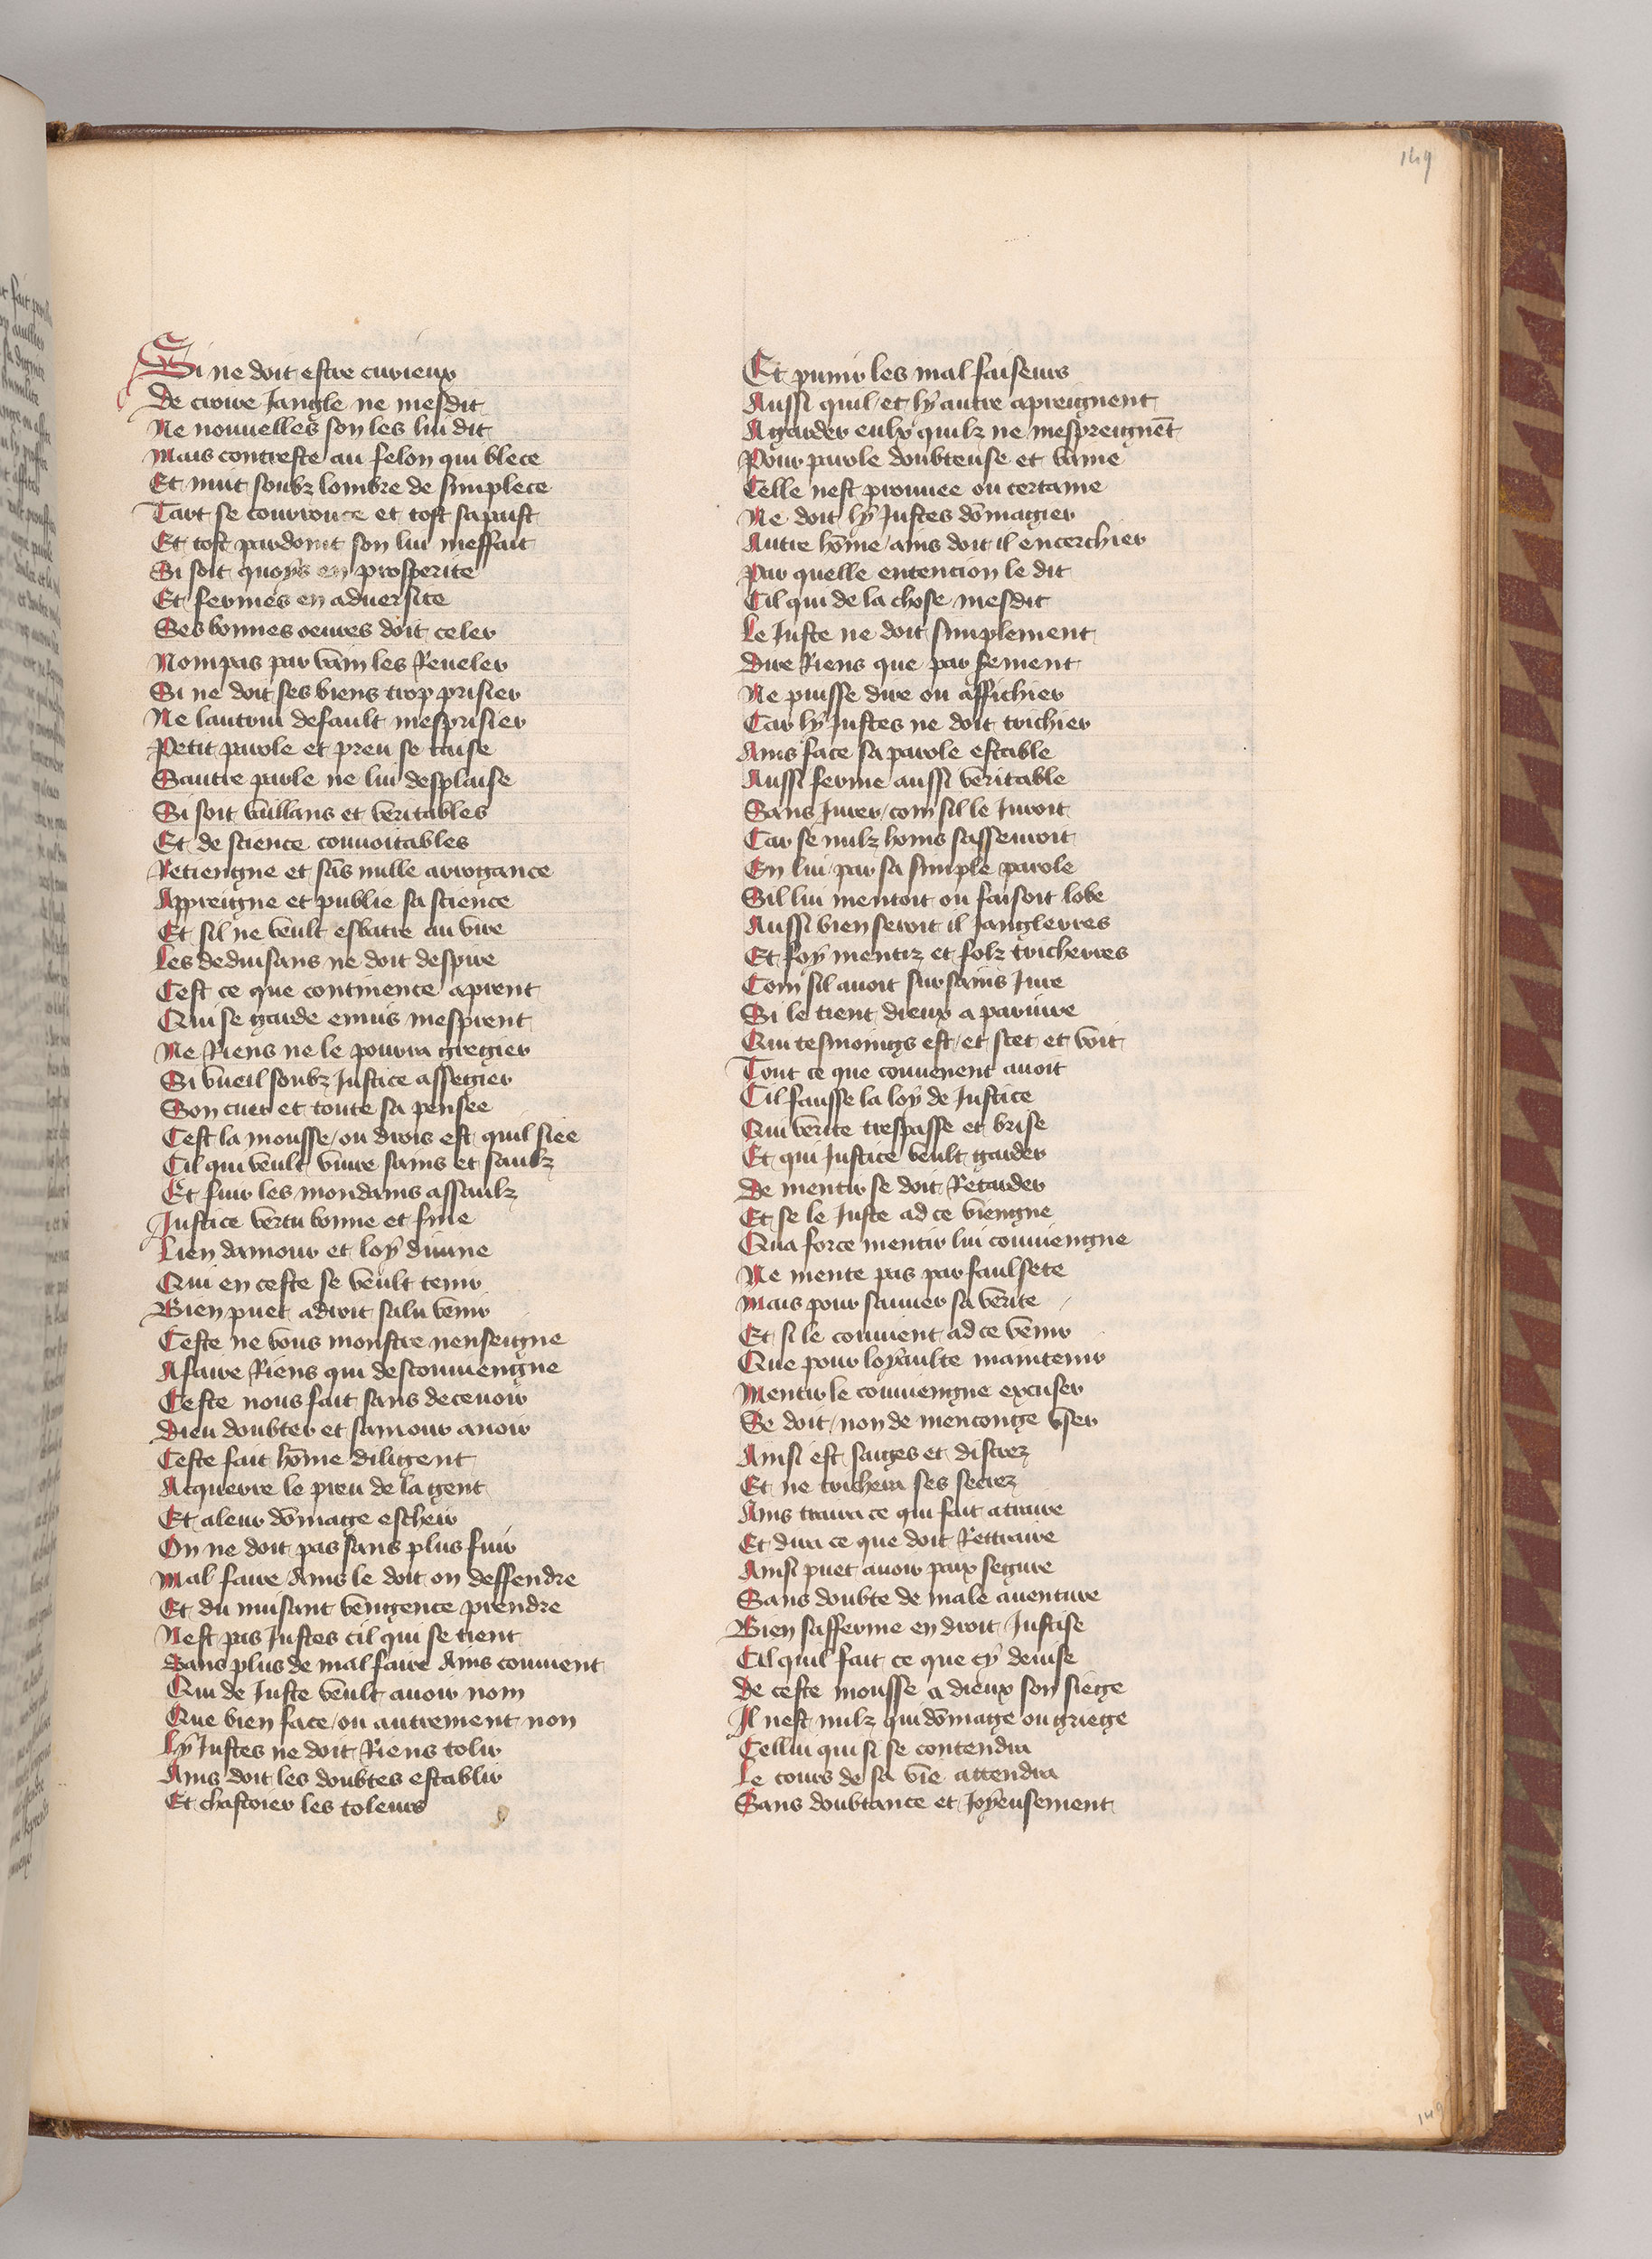 149
Si ne doit estre curieux
De croire Jangle ne mesdit
Ne nouuelles son les lui dit
Mais contreste au felon qui blece
Et nuit soubz lombre de simplece
Tart se courrouce et tost sapaist
Et tost pardoint son lui meffait
Si soit quoys en prosperite
Et fermes en aduersite
Ses bonnes oeures doit celer
Nompas par vain les Reueler
Si ne doit ses biens trop prisier
Ne lautrui default mesprisier
Petit parole et preu se taise
Sautre parle ne lui desplaise
Si soit vaillans et veritables
Et de science conuoitables
Retiengne et sãs nulle arrogance
Appreigne et publie sa science
Et sil ne veult esbatre au vire
Les deduisans ne doit despire
Cest ce que continence aprent
Qui se garde enuis mesprent
Ne Riens ne le pourra gregier
Si vueil soubz Justice assegier
Son cuer et toute sa pensee
Cest la mousse/ou drois est quil siee
Cil qui veult viure sains et saulz
Et fuir les mondains assaulz
Justice vertu bonne et fine
Lien damour et loy diuine
Qui en ceste se veult tenir
Bien puet adroit salu venir
Ceste ne vous monstre nenseigne
Afaire Riens qui desconuiengne
Ceste nous fait sans deceuoir
Dieu doubter et samour auoir
Ceste fait hõme diligent
Acquerre le preu de la gent
Et aleur dõmage escheir
On ne doit pas sans plus fuir
Mal faire Ains le doit on deffendre
Et du nuisant vengence prendre
Nest pas Justes cil qui se tient
Sans plus de mal faire Ains conuient
Qui de Juste veult auoir nom
Que bien face/ou autrement non
Ly Justes ne doit Riens tolir
Ains doit les doubtes establir
Et chastoier les toleurs
Et punir les mal faiseurs
Aussi quil/et ly autre apreignent
A garder eulx quilz ne mespreignẽt
Pour parole doubteuse et vaine
Celle nest prouuee ou certaine
Ne doit ly Justes dõmagier
Autre hõme/ains doit il encerchier
Par quelle entencion le dit
Cil qui de la chose mesdit
Le Juste ne doit simplement
Dire Riens que par serment
Ne puisse dire ou affichier
Car ly Justes ne doit trichier
Ains face sa parole estable
Aussi ferme aussi veritable
Sans Jurer/com sil le Juroit
Car se nulz homs sasseuroit
En lui par sa simple parole
Sil lui mentoit ou faisoit lobe
Aussi bien seroit il Janglerres
Et foy mentiz et folz tricherres
Com sil auoit sur sains Jure
Si le tient dieux a pariure
Qui tesmoings est/et scet et voit
Tout ce que conuenent auoit
Cil fausse la loy de Justice
Qui verite trespasse et brise
Et qui Justice veult garder
De mentir se doit Retarder
Et se le Juste ad ce viengne
Qua force mentir lui conuiengne
Ne mente pas par faulsete
Mais pour sauuer sa verite
Et si le conuient ad ce venir
Que pour loyaulte maintenir
Mentir le conuiengne excuser
Se doit/non de menconge vser
Ainsi est saiges et discrez
Et ne trichera ses secrez
Ains traira ce qui fait atraire
Et dira ce que doit Rettraire
Ainsi puet auoir paix segure
Sans doubte de male auenture
Bien safferme en droit Justise
Cil quil fait ce que cy deuise
De ceste mousse a dieux son siege
Il nest nulz qui dõmage ou griege
Cellui qui si se contendra
Le cours de sa vie attendra
Sans doubtance et Joyeusement
149